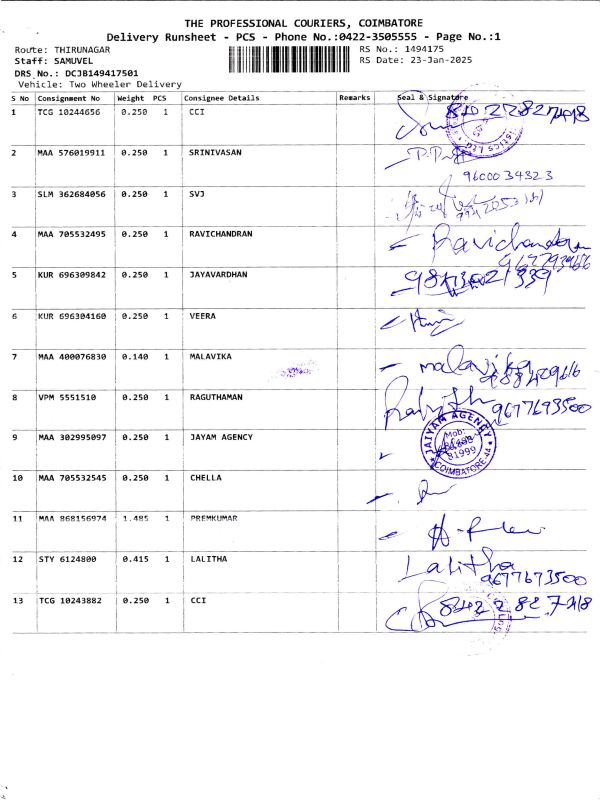 THE PROFESSIONAL COURIERS, COIMBATORE
Delivery Runsheet - PCS - Phone No.:0422-3505555 - Page No.:1
Route: THIRUNAGAR RS No.: 1494175
Staff: SAMUVEL RS Date: 23-Jan-2025
DRS No.: DCJB149417501
Vehicle: Two Wheeler Delivery
S No Consignment No Weight PCS Consignee Details Remarks Seal & Signature
1 TCG 10244656 0.250 1 CCI
2 MAA 576019911 0.250 1 SRINIVASAN
9600034323
3 SLM 362684056 0.250 1 SVJ
4 MAA 705532495 0.250 1 RAVICHANDRAN Ravichandran
5 KUR 696309842 0.250 1 JAYAVARDHAN
6 KUR 696304160 0.250 1 VEERA
7 MAA 400076830 0.140 1 MALAVIKA malavika
8 VPM 5551510 0.250 1 RAGUTHAMAN 9677693500
9 MAA 302995097 0.250 1 JAYAM AGENCY JAIYAM AGENCY Mob: 81999 COIMBATORE-44
10 MAA 705532545 0.250 1 CHELLA
11 MAA 868156974 1.485 1 PREMKUMAR
12 STY 6124800 0.415 1 LALITHA Lalitha
9677673500
13 TCG 10243882 0.250 1 CCI